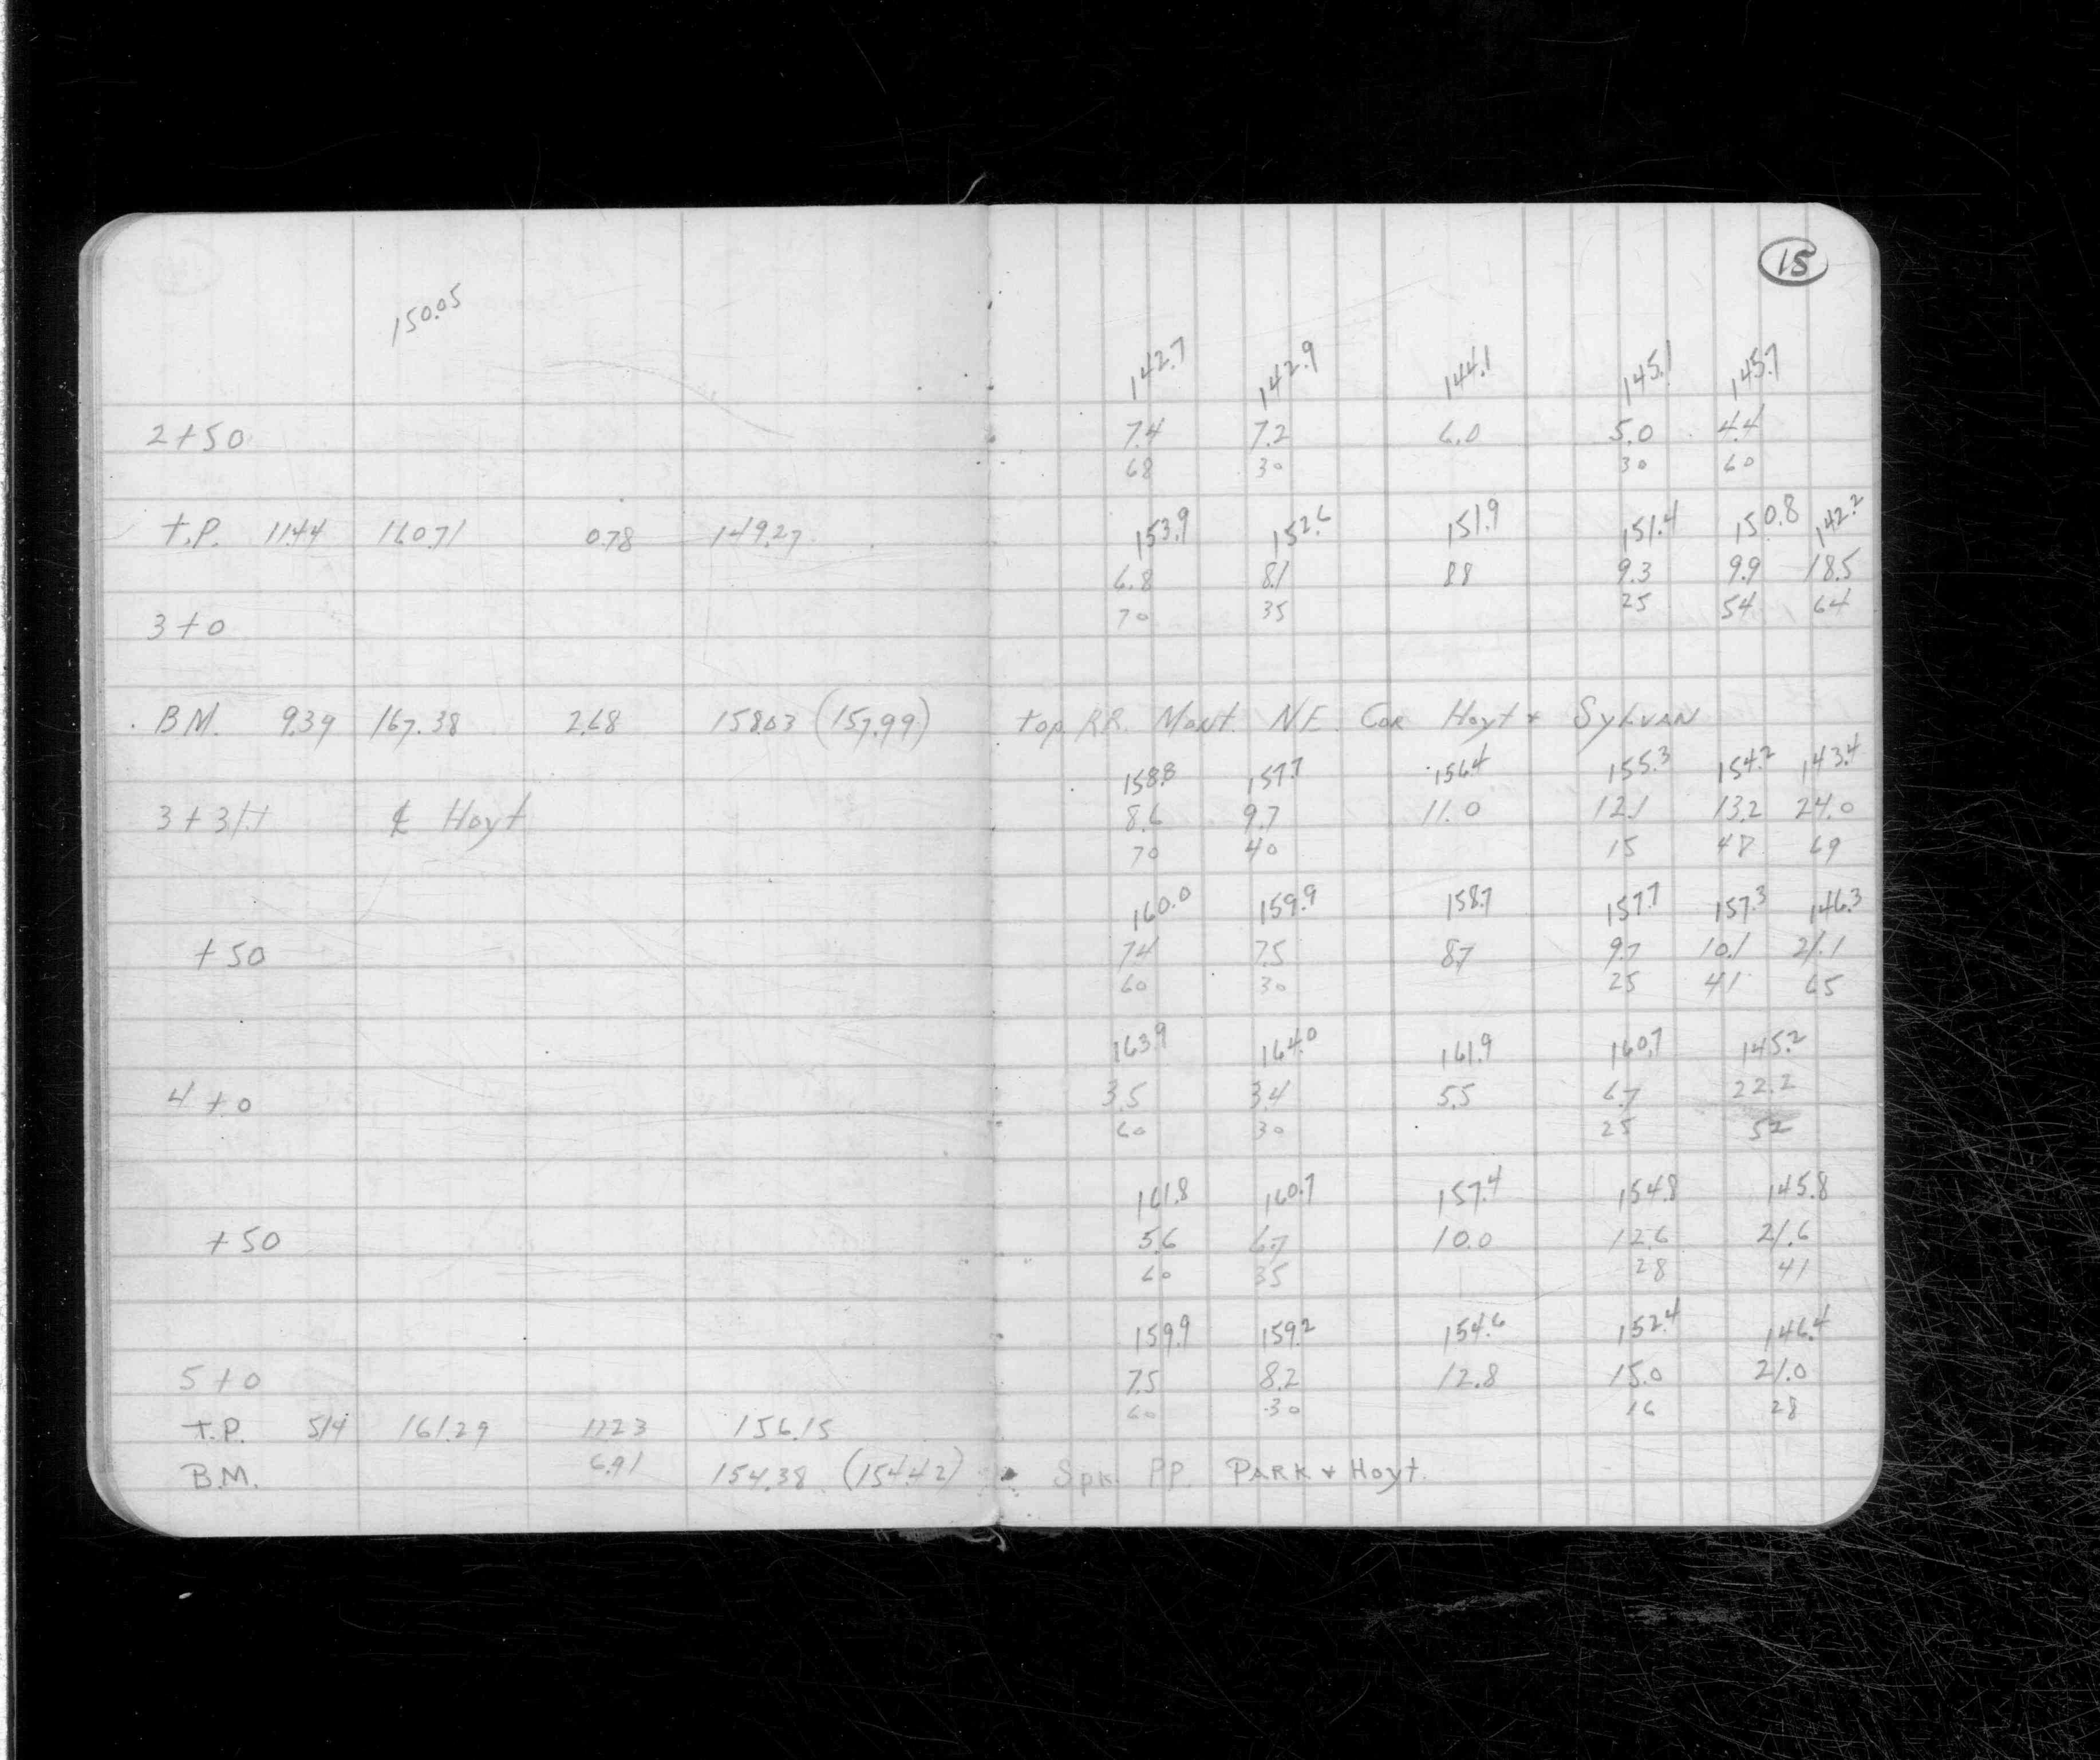 15
150.05
142.7 142.9 144.1 145.1 145.7
2+50 7.4 7.2 6.0 5.0 4.4
68 30 30 60
T.P. 11.44 160.71 0.78 149.27 153.9 152.6 151.9 151.4 150.8 142.2
6.8 8.1 8.8 9.3 9.9 18.5
3+0 70 35 25 54 64
B.M. 9.39 167.38 2.68 158.03 (157.99) top RR. Mont. N.E. Cor Hoyt + Sylvan
158.8 157.7 156.4 155.3 154.2 143.4
3+31.1 ℄ Hoyt 8.6 9.7 11.0 12.1 13.2 24.0
70 40 15 47 69
160.0 159.9 158.7 157.7 157.3 146.3
+50 7.4 7.5 8.7 9.7 10.1 21.1
60 30 25 41 65
163.9 164.0 161.9 160.7 145.2
4+0 3.5 3.4 5.5 6.7 22.2
60 30 25 52
161.8 160.7 157.4 154.8 145.8
+50 5.6 6.7 10.0 12.6 21.6
60 35 28 41
159.9 159.2 154.6 152.4 146.4
5+0 7.5 8.2 12.8 15.0 21.0
60 30 16 28
T.P. 5.14 161.29 11.23 156.15
B.M. 6.91 154.38 (154.42) Spk. PP. Park + Hoyt.